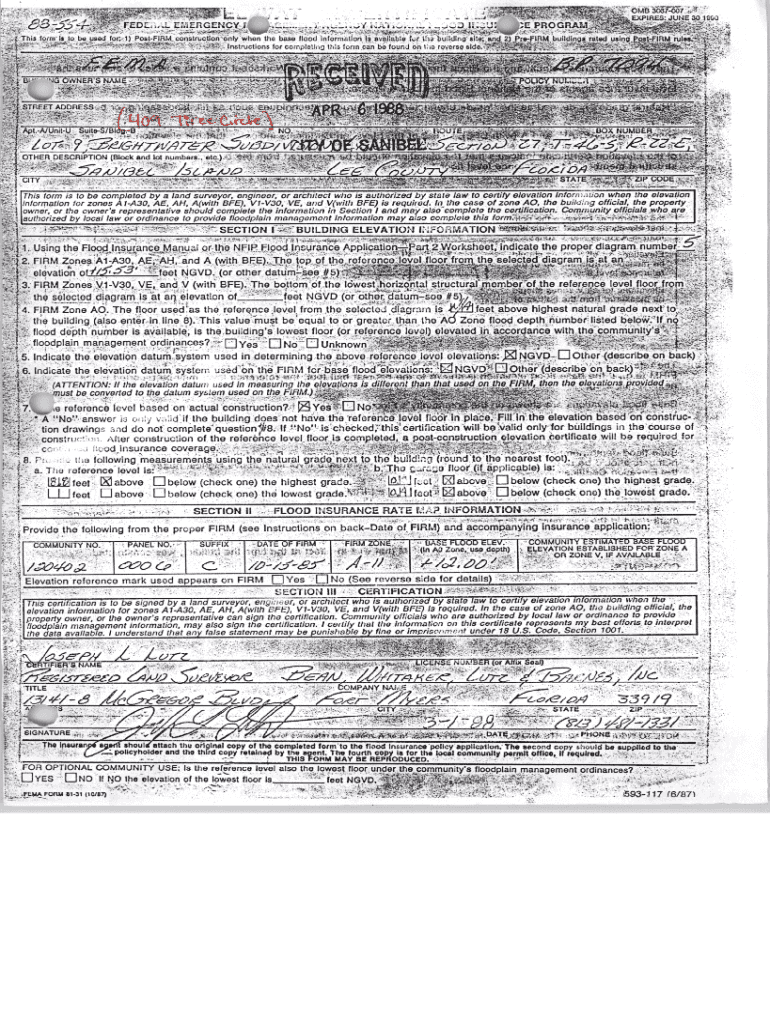 88-554
OMB 3067-007
EXPIRES: JUNE 30 1990
FEDERAL EMERGENCY NATIONAL FLOOD PROGRAM
This form is to be used for: 1) Post-FIRM construction only when the base flood information is available for the building site; and 2) Pre-FIRM buildings rated using Post-FIRM rules.
Instructions for completing this form can be found on the reverse side.
RECEIVED
OWNER'S NAME
POLICY
STREET ADDRESS
APR 6 1988
Apt.-A/Unit-U Suite-S/Bldg.-B NO. ROUTE BOX NUMBER
LOT 9 BRIGHTWATER CITY OF SANIBEL SECTION 27, T-46-S, R-22-E,
OTHER DESCRIPTION (Block and lot numbers, etc.)
SANIBEL ISLAND LEE COUNTY FLORIDA
CITY STATE ZIP CODE
This form is to be completed by a land surveyor, engineer, or architect who is authorized by state law to certify elevation information when the elevation
information for zones A1-A30, AE, AH, A(with BFE), V1-V30, VE, and V(with BFE) is required. In the case of zone AO, the building official, the property
owner, or the owner's representative should complete the information in Section I and may also complete the certification. Community officials who are
authorized by local law or ordinance to provide floodplain management information may also complete this form.
SECTION I BUILDING ELEVATION INFORMATION
1. Using the Flood Insurance Manual or the NFIP Flood Insurance Application—Part 2 Worksheet, indicate the proper diagram number 5
2. FIRM Zones A1-A30, AE, AH, and A (with BFE). The top of the reference level floor from the selected diagram is at an
elevation of 15.53' feet NGVD. (or other datum–see #5)
3. FIRM Zones V1-V30, VE, and V (with BFE). The bottom of the lowest horizontal structural member of the reference level floor from
the selected diagram is at an elevation of feet NGVD (or other datum–see #5)
4. FIRM Zone AO. The floor used as the reference level from the selected diagram is N/A feet above highest natural grade next to
the building (also enter in line 8). This value must be equal to or greater than the AO Zone flood depth number listed below. If no
flood depth number is available, is the building's lowest floor (or reference level) elevated in accordance with the community's
floodplain management ordinances? Yes No Unknown
5. Indicate the elevation datum system used in determining the above reference level elevations: NGVD Other (describe on back)
6. Indicate the elevation datum system used on the FIRM for base flood elevations: NGVD Other (describe on back)
(ATTENTION: If the elevation datum used in measuring the elevations is different than that used on the FIRM, then the elevations provided
must be converted to the datum system used on the FIRM.)
7. reference level based on actual construction? Yes No
* A "No" answer is only valid if the building does not have the reference level floor in place. Fill in the elevation based on construc-
tion drawings and do not complete question #8. If "No" is checked, this certification will be valid only for buildings in the course of
construction. After construction of the reference level floor is completed, a post-construction elevation certificate will be required for
flood insurance coverage.
8. the following measurements using the natural grade next to the building (round to the nearest foot).
a. The reference level is: b. The garage floor (if applicable) is:
feet above below (check one) the highest grade. feet above below (check one) the highest grade.
feet above below (check one) the lowest grade. feet above below (check one) the lowest grade.
SECTION II FLOOD INSURANCE RATE MAP INFORMATION
Provide the following from the proper FIRM (see Instructions on back–Date of FIRM) and accompanying insurance application:
COMMUNITY NO. PANEL NO. SUFFIX DATE OF FIRM FIRM ZONE BASE FLOOD ELEV. (In AO Zone, use depth) COMMUNITY ESTIMATED BASE FLOOD ELEVATION ESTABLISHED FOR ZONE A OR ZONE V, IF AVAILABLE
120402 0006 C 10-15-85 A-11 +12.00'
Elevation reference mark used appears on FIRM Yes No (See reverse side for details)
SECTION III CERTIFICATION
This certification is to be signed by a land surveyor, engineer, or architect who is authorized by state law to certify elevation information when the
elevation information for zones A1-A30, AE, AH, A(with BFE), V1-V30, VE, and V(with BFE) is required. In the case of zone AO, the building official, the
property owner, or the owner's representative can sign the certification. Community officials who are authorized by local law or ordinance to provide
floodplain management information, may also sign the certification. I certify that the information on this certificate represents my best efforts to interpret
the data available. I understand that any false statement may be punishable by fine or imprisonment under 18 U.S. Code, Section 1001.
JOSEPH L LUTZ
CERTIFIER'S NAME LICENSE NUMBER (or Affix Seal)
REGISTERED LAND SURVEYOR BEAN, WHITAKER, LUTZ & BARNES, INC
TITLE COMPANY NAME
13141-8 McGREGOR BLVD FORT MYERS FLORIDA 33919
CITY STATE ZIP
3-1-88 (813) 481-1331
SIGNATURE DATE PHONE
The insurance agent should attach the original copy of the completed form to the flood insurance policy application. The second copy should be supplied to the
policyholder and the third copy retained by the agent. The fourth copy is for the local community permit office, if required.
THIS FORM MAY BE REPRODUCED.
FOR OPTIONAL COMMUNITY USE: Is the reference level also the lowest floor under the community's floodplain management ordinances?
YES NO If NO the elevation of the lowest floor is feet NGVD.
FEMA FORM 81-31 (10/87)
593-117 (6/87)